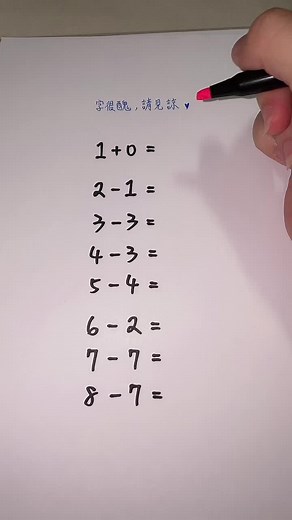 字很醜,請見諒 ♥
1+0=
2-1=
3-3=
4-3=
5-4=
6-2=
7-7=
8-7=